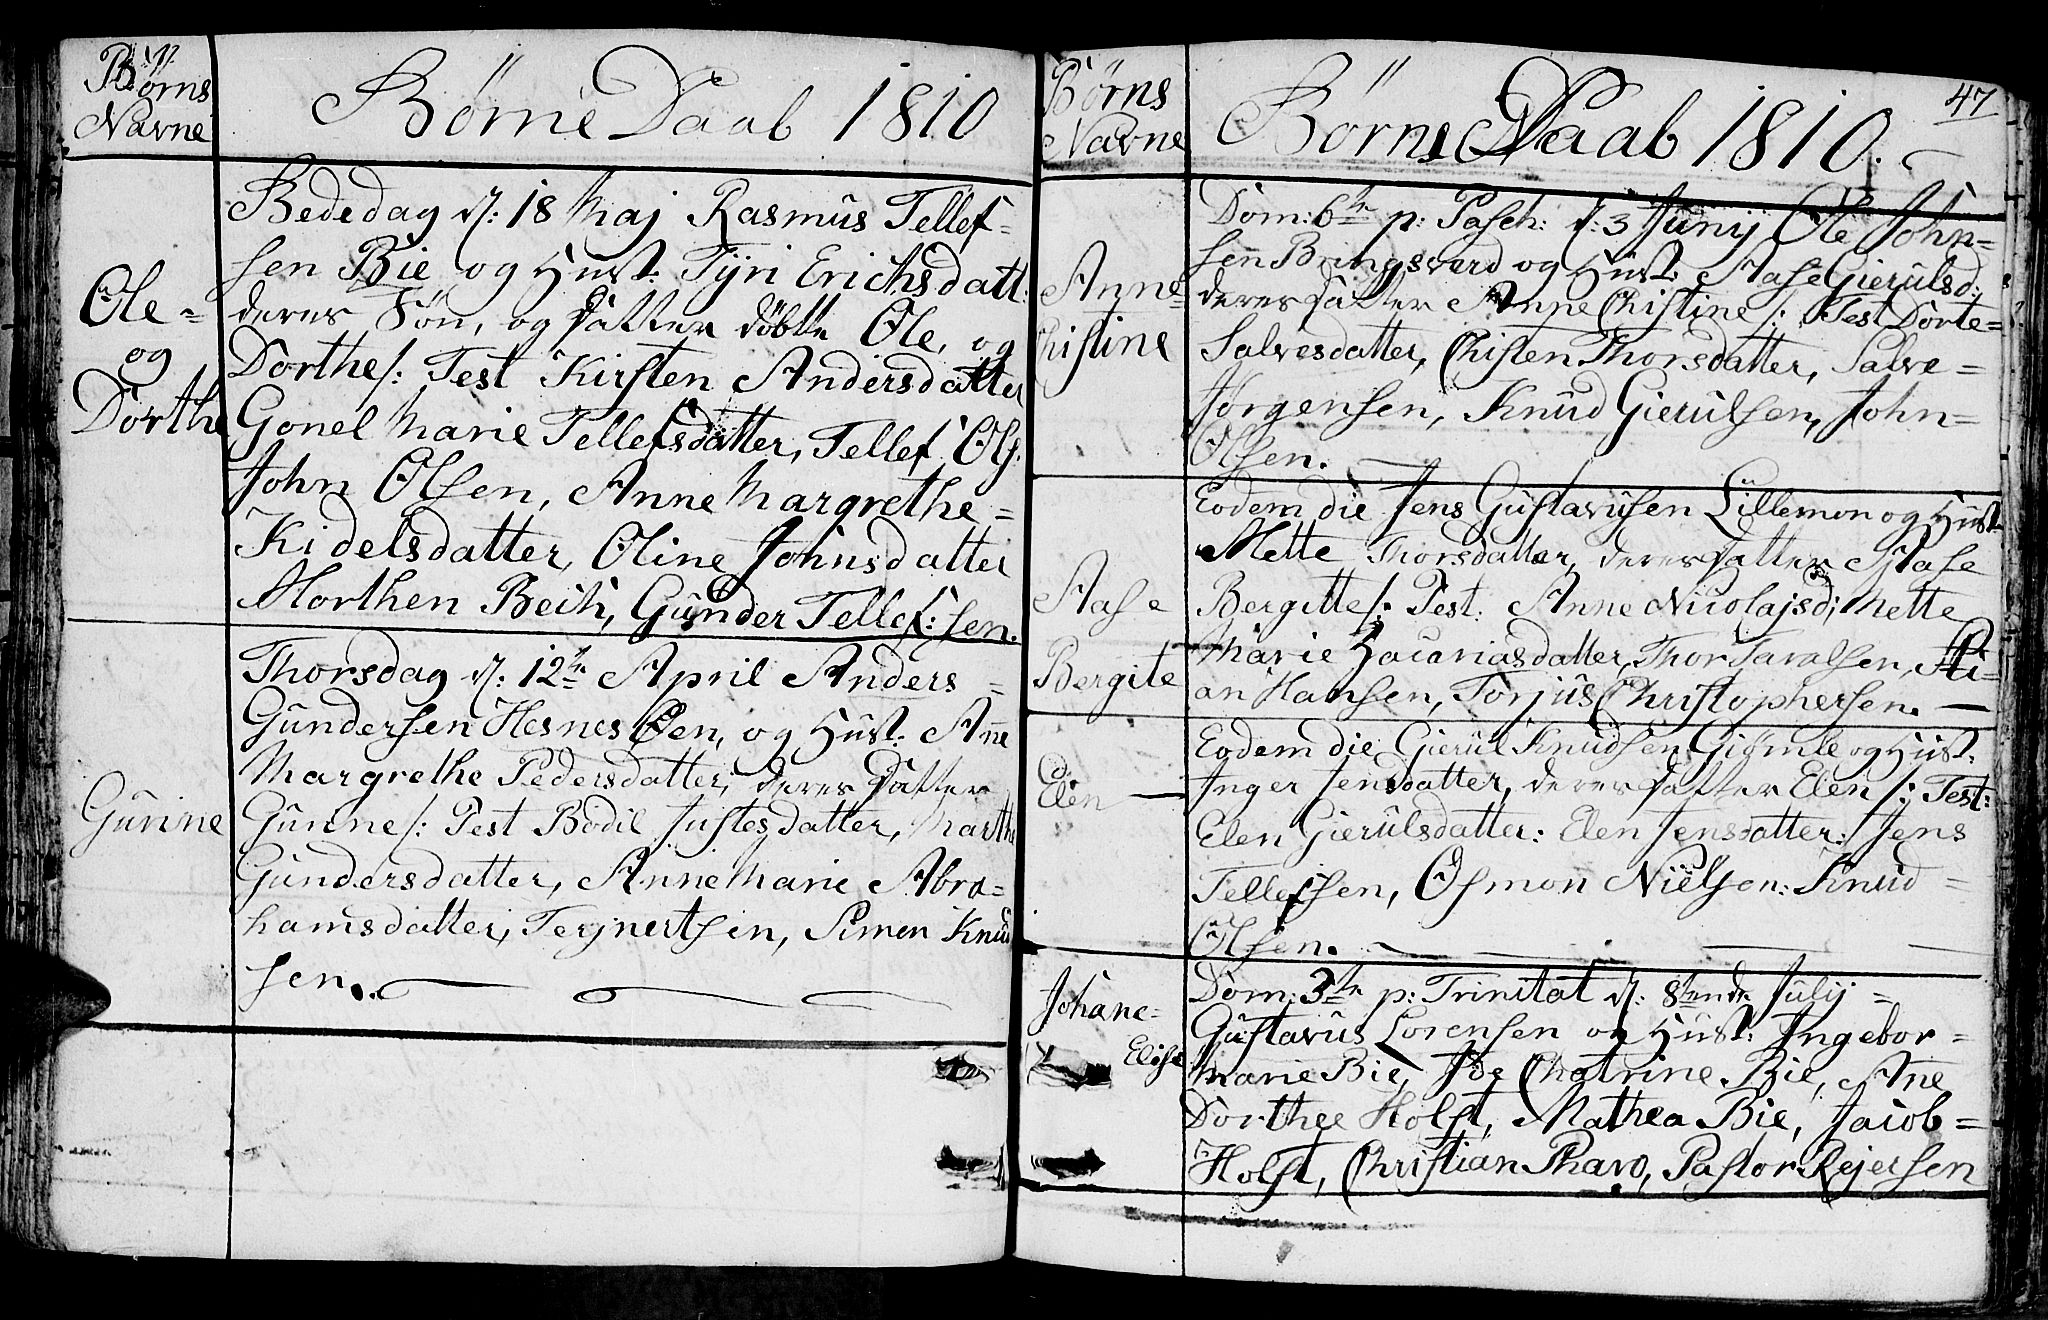 Børns
Navne
Børne Daab 1810
Ole =
og
Dorthe
Bededag d: 18 Maj Rasmus Tellef=
sen Bie og Hust: Tÿri Erichsdatt:
deres Søn, og Datter døbte Ole, og
Dorthe /: Test Kirsten Andersdatter
Gonel Marie Tellefsdatter, Tellef Ols:
John Olsen, Anne Margrethe =
Kidelsdatter, Oline Johnsdatter
Morthen Beih, Gunder Tellef: sen.
Gurine
Thorsdag d: 12te April Anders =
Gundersen Hesnes Øen, og Hust. Anne
Margrethe Pedersdatter, deres Datter
Gunne /: Test Bodil Justesdatter, Marthe
Gundersdatter, Anne Marie Abra=
hamsdatter, Terjnertsen, Simon Knud
sen.
47
Børns
Navne
Børne Daab 1810.
Anne=
Christine
Dom: 6te p: Pasch: d: 3 Junij Ole John=
sen Bringsverd og Hust: Aase Gierulsd:
deres Datter Anne Christine /: Test Dorte=
Salvesdatter, Christen Thorsdatter, Salve =
Jørgensen, Knud Gierulsen, John=
Olsen.
Aase
Bergite
Eodem die Jens Gustavusen Lillemon og Hust
Mette Thorsdatter, deres Datter Aase
Bergitte /: Test: Anne Nicolajsd; Mette
Marie Zacariasdatter, Thor Taralsen, Sti=
an Hansen, Torjus Christophersen.
Elen
Eodem die Gierul Knudsen Giømle og Hust.
Inger Jensdatter, deres Datter Elen /: Test:
Elen Gierulsdatter: Elen Jensdatter: Jens
Tellefsen, Osmon Nielsen: Knud =
Olsen.
Johane=
Elise
Dom: 3te p: Trinitat d: 8tende Julij =
Gustavus Lorensen og Hust: Ingebor=
Marie Bie, Ide Chatrine Bie, Ane
Dorthee Holst, Mathea Bie, Jacob=
Holst, Christian Tharo, Pastor Rejersen